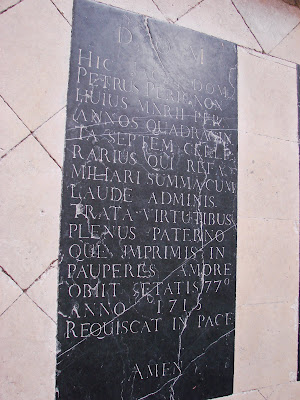 D O M
HIC DOM.
PETRUS PERIGNON
HUIUS MNRII PER
ANNOS QUADRAGIN
TA SEPTEM CELLE
RARIUS QUI RE FA
MILIARI SUMMA CUM
LAUDE ADMINIS
TRATA VIRTUTIBUS
PLENUS PATERNO
QUE IMPRIMIS IN
PAUPERES AMORE
OBIIT ÆTATIS 77°
ANNO 1715
REQUISCAT IN PACE
AMEN